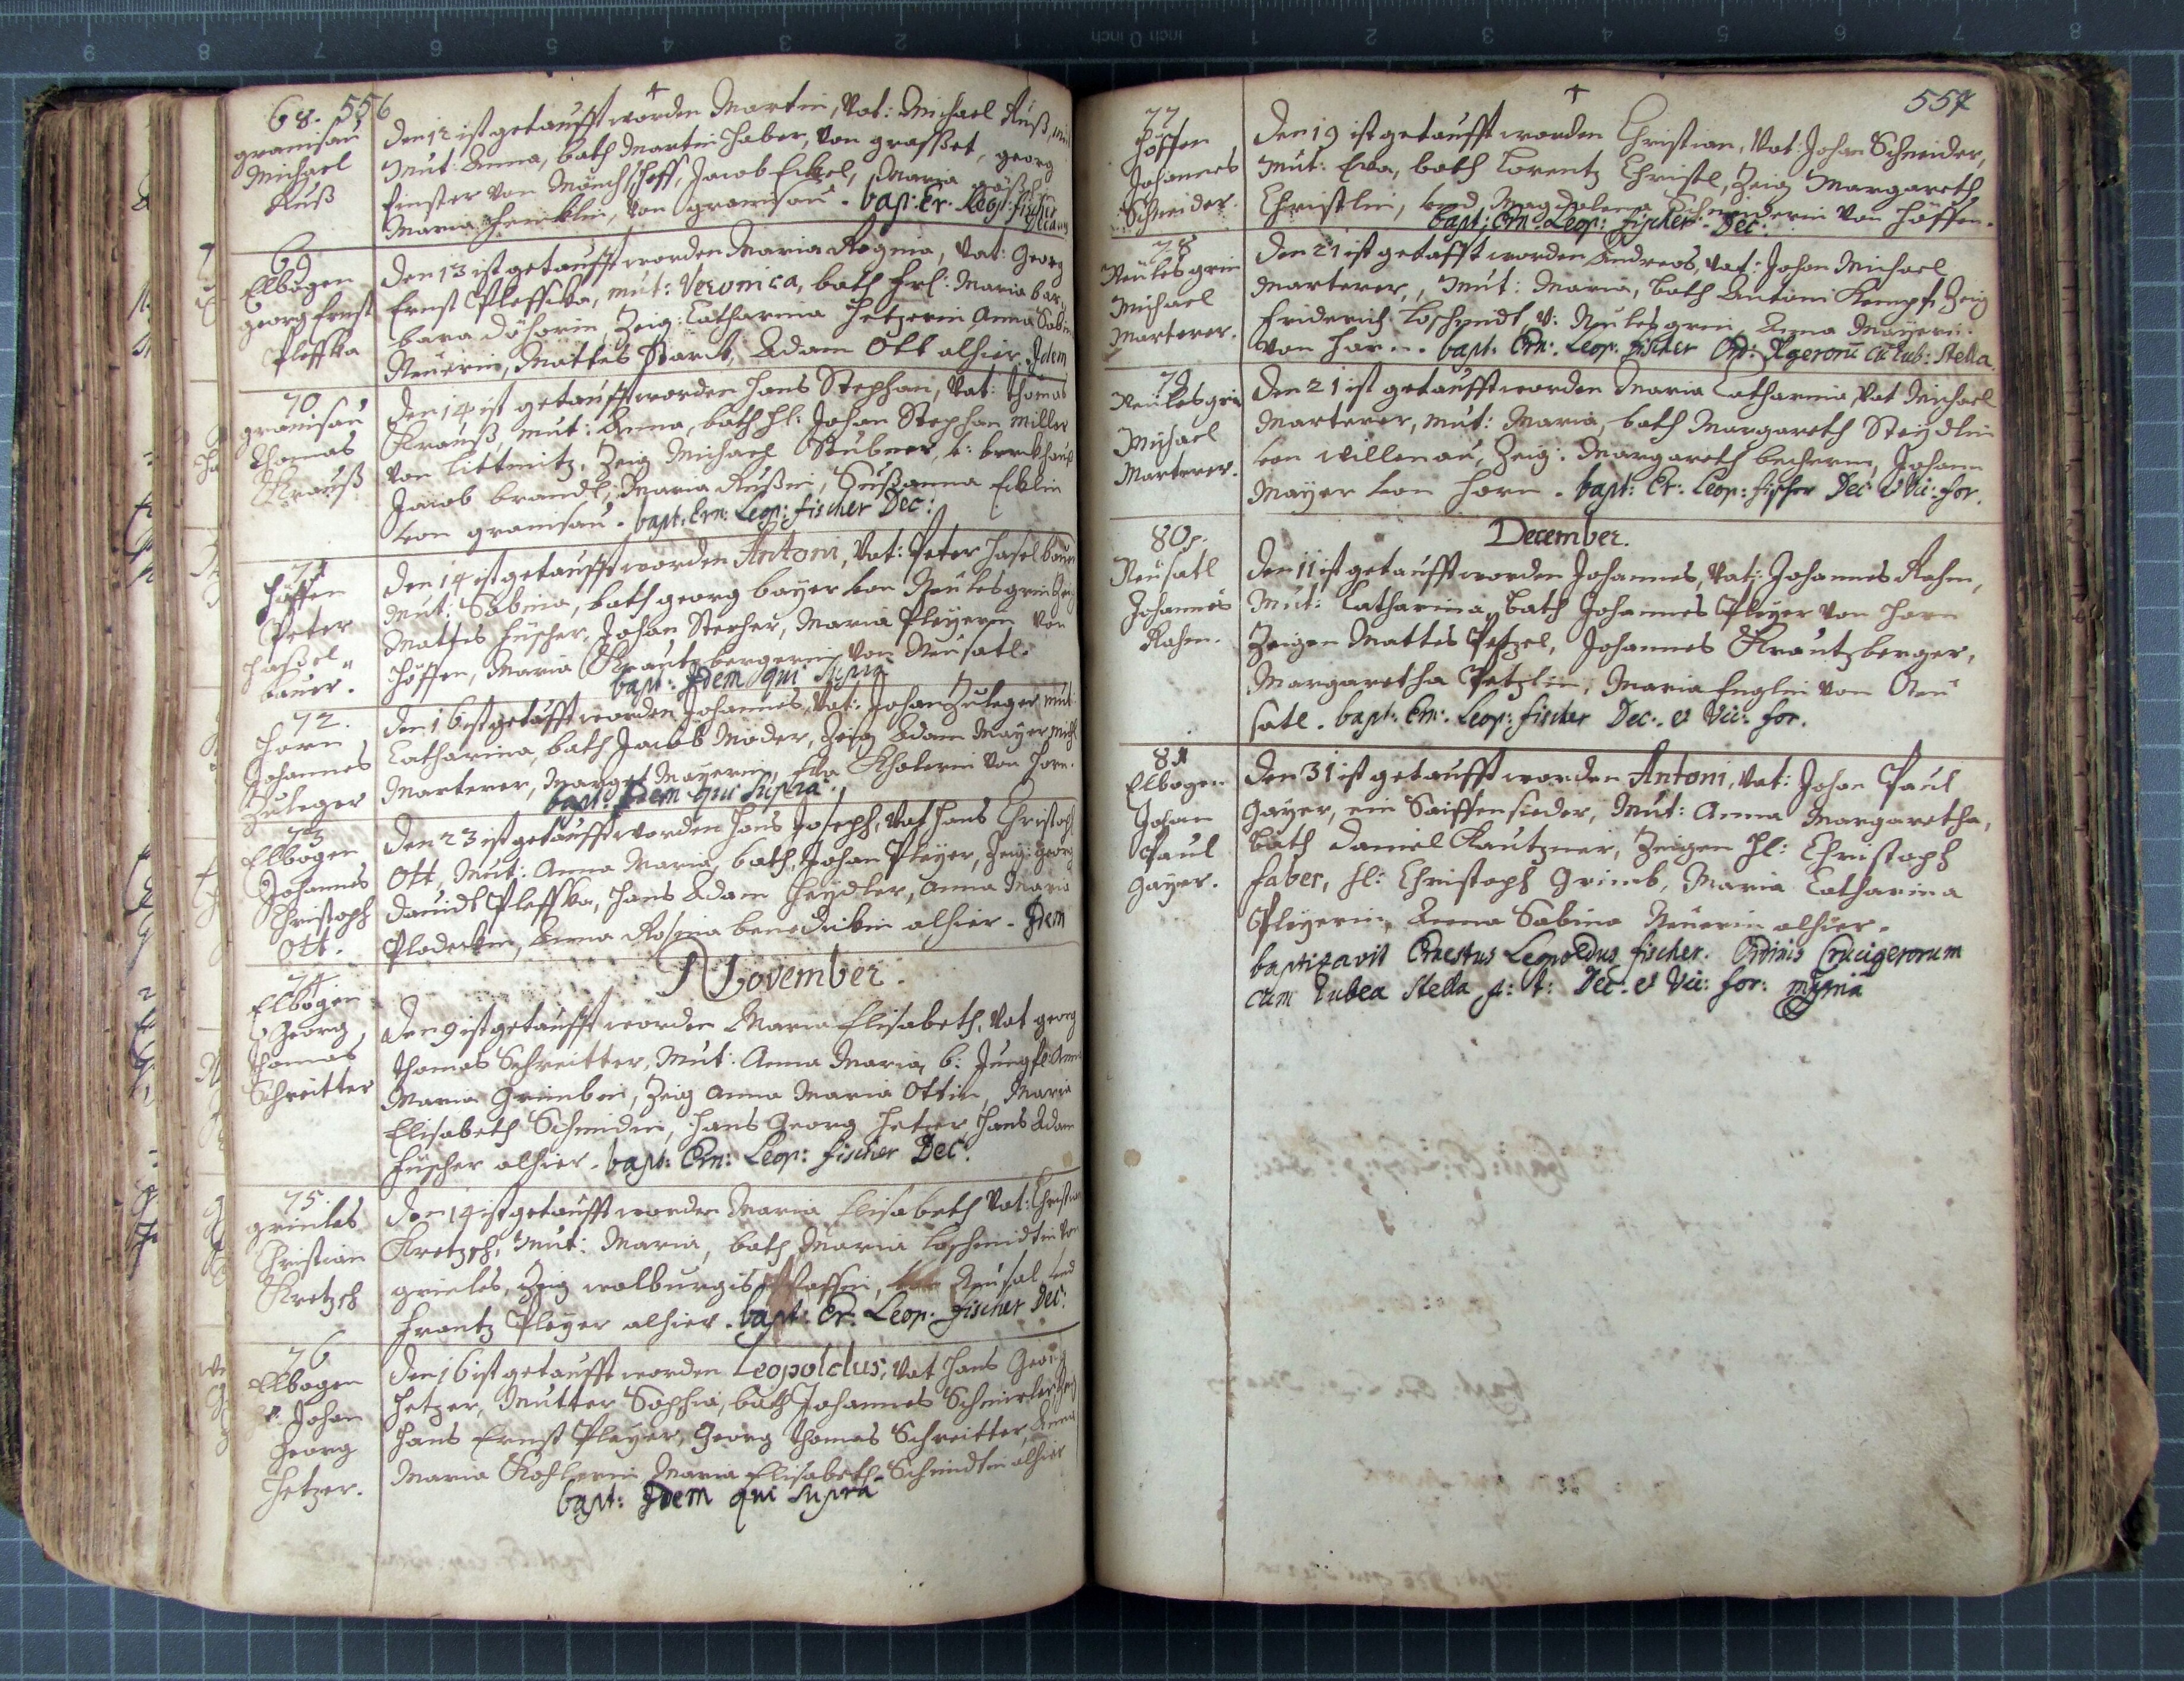 68. 556
granisau
Michael
Ruß
Den 12 ist getaufft worden Martin, Vat: Michael Ruß,
Mut: Anna, bath Martin Haber, von graßet, georg
finster von Mönchhoff, Jacob Eckel, Maria
Maria Henklin, von granisau. bap: Er: Leop: fischer
Decanus
69
Elbogen
georg Ernst
Pleffka
Den 13 ist getaufft worden Maria Regina, Vat: Georg
Ernst Pleffka, mut: Veronica, bath Frl: Maria Bar„
bara Zeig: Catharina Hetzerin Anna Sabin
Neuerin, Mattes Adam Ott alhier. Idem
70
granisau
Thomas
Krauß
Den 14 ist getaufft worden Hans Stephan, Vat: Thomas
Krauß, mut: Anna, bath Hl: Johan Stephan Miller
von Littmitz, Zeig Michael Stubner,
Jacob brandt, Maria Rußin, Sußanna Ecklin
von granisau. bapt: Ern: Leop: fischer Dec:
71
Höffen
Peter
Hasel„
bauer.
Den 14 ist getaufft worden Antoni, Vat: Peter Haselbauer
Mut: Sabina, bath georg bayer von Neukesgrin Zeig
Mattes fuscher, Johan Stecher, Maria Pleyerin von
Höffen, Maria Krautzbergerin von Neusatl.
bapt: Idem qui supra
72.
Horn
Johannes
Zuleger
Den 16 ist getaufft worden Johannes, Vat: Johan Zuleger mut:
Catharina, bath Jacob Moder, Zeig Adam Mayer, Michl
Marterer, Marget Mayerin, Eva Kholerin von Horn.
bapt: Idem qui supra.
73
Elbogen
Johannes
Christoph
Ott.
Den 23 ist getaufft worden Hans Joseph, Vat Hans Christoph
Ott, Mut: Anna Maria, bath Johan Pleyer, Zeig: georg
Davidt Pleffka, Hans Adam Heydler, Anna Maria
Anna Rosina alhier. Idem
November.
74
Elbogen
Georg
Thomas
Schreitter
Den 9 ist getaufft worden Maria Elisabeth, Vat georg
Thomas Schreitter, Mut: Anna Maria, b: Jungfl: Anna
Maria Grimbin, Zeig Anna Maria Ottin, Maria
Elisabeth Schmidin, Hans Georg Hetzer, Hans Adam
fuscher alhier. bapt: Ern: Leop: fischer Dec:
75.
grinles
Christian
Kretzsch
Den 14 ist getaufft worden Maria Elisabeth Vat: Christian
Kretzsch, Mut: Maria, bath Maria Loschmidtin von
grinles, Zeig walburgis von Neusatl und
Frantz Pleyer alhier. bapt: Er: Leop: fischer Dec:
76
Elbogen
Johan
Georg
Hetzer.
Den 16 ist getaufft worden Leopoldus, Vat Hans Georg
Hetzer, Mutter Sophia, bath Johannes Zeig
Hans Ernst Pleyer, Georg Thomas Schreitter, Anna
Maria Kohlerin, Maria Elisabeth Schmidtin alhier
bapt: Idem qui supra
557
77
Höffen
Johannes
Schneider.
Den 19 ist getaufft worden Christian, Vat: Johan Schneider,
Mut: Eva, bath Lorentz Christl, Zeig Margareth
Christlin, und Magdalena Schneiderin von Höffen.
bapt: Ern: Leop: fischer Dec:
78
Neukesgrin
Michael
Marterer.
Den 21 ist getaufft worden Andreas, Vat: Johan Michael
Marterer, Mut: Maria, bath Antoni Kempf, Zeig
Friderich Loschmidt, v: Neukesgrin, Anna Mayerin
von Horn. bapt: Ern: Leop: fischer Ord: Cr
 cu rub: stella.
79
Neukesgrin
Michael
Marterer.
Den 21 ist getaufft worden Maria Catharina, Vat Michael
Marterer, mut: Maria, bath Margareth Steydlin
von Willenau, Zeig: Margareth becherin, Johann
Mayer von Horn. bapt: Er: Leop: fischer Dec et Vic: for.
December.
80
Neusatl
Johannes
Rahm.
Den 11 ist getaufft worden Johannes, Vat: Johannes Rahm,
Mut: Catharina, bath Johannes Pleyer von Horn
Zeigen Mattes Petzel, Johannes Krautzberger,
Margaretha Petzlin, Maria Englin von Neu
satl. bapt: Ern: Leop: fischer Dec: et Vic: for.
81
Elbogen
Johan
Paul
Gayer.
Den 31 ist getaufft worden Antoni, Vat: Johan Paul
Gayer, ein Saiffensieder, Mut: Anna Margaretha,
bath Daniel Kautzner, Zeigen Hl: Christoph
faber, Hl: Christoph Grimb, Maria Catharina
Pleyerin, Anna Sabina Neuerin alhier.
baptizavit Ernestus Leopoldus fischer. Ordinis Crucigerorum
cum rubea stella p: t: Dec: et Vic: for: mpria